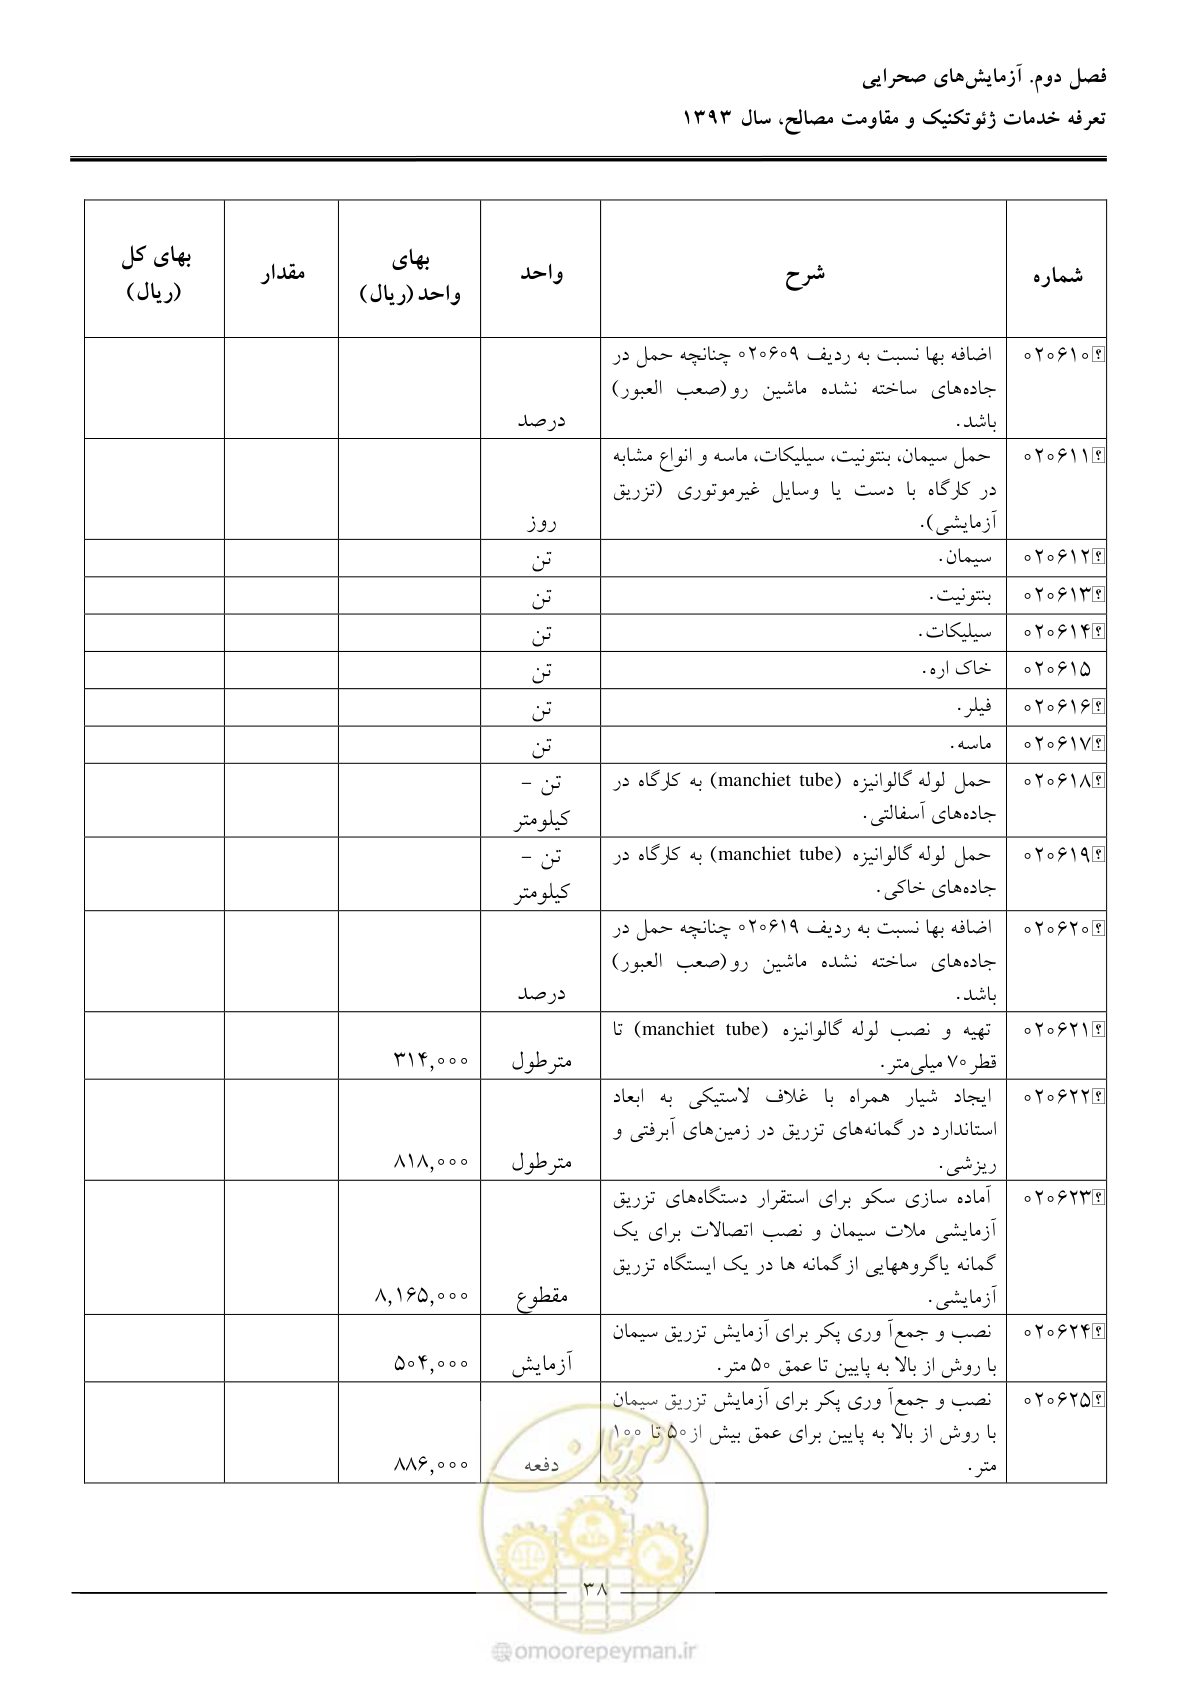 فصل دوم. آزمایش‌های صحرایی
تعرفه خدمات ژئوتکنیک و مقاومت مصالح، سال ۱۳۹۳
شماره شرح واحد بهای واحد (ریال) مقدار بهای کل (ریال)
۰۲۰۶۱۰ اضافه بها نسبت به ردیف ۰۲۰۶۰۹ چنانچه حمل در
جاده‌های ساخته نشده ماشین رو(صعب العبور)
باشد. درصد
۰۲۰۶۱۱ حمل سیمان، بنتونیت، سیلیکات، ماسه و انواع مشابه
در کارگاه با دست یا وسایل غیرموتوری (تزریق
آزمایشی). روز
۰۲۰۶۱۲ سیمان. تن
۰۲۰۶۱۳ بنتونیت. تن
۰۲۰۶۱۴ سیلیکات. تن
۰۲۰۶۱۵ خاک اره. تن
۰۲۰۶۱۶ فیلر. تن
۰۲۰۶۱۷ ماسه. تن
۰۲۰۶۱۸ حمل لوله گالوانیزه (manchiet tube) به کارگاه در تن –
جاده‌های آسفالتی. کیلومتر
۰۲۰۶۱۹ حمل لوله گالوانیزه (manchiet tube) به کارگاه در تن –
جاده‌های خاکی. کیلومتر
۰۲۰۶۲۰ اضافه بها نسبت به ردیف ۰۲۰۶۱۹ چنانچه حمل در
جاده‌های ساخته نشده ماشین رو(صعب العبور)
باشد. درصد
۰۲۰۶۲۱ تهیه و نصب لوله گالوانیزه (manchiet tube) تا
قطر۷۰ میلی‌متر. مترطول ۳۱۴,۰۰۰
۰۲۰۶۲۲ ایجاد شیار همراه با غلاف لاستیکی به ابعاد
استاندارد در گمانه‌های تزریق در زمین‌های آبرفتی و
ریزشی. مترطول ۸۱۸,۰۰۰
۰۲۰۶۲۳ آماده سازی سکو برای استقرار دستگاه‌های تزریق
آزمایشی ملات سیمان و نصب اتصالات برای یک
گمانه یاگروههایی از گمانه ها در یک ایستگاه تزریق
آزمایشی. مقطوع ۸,۱۶۵,۰۰۰
۰۲۰۶۲۴ نصب و جمع‌آ وری پکر برای آزمایش تزریق سیمان
با روش از بالا به پایین تا عمق ۵۰ متر. آزمایش ۵۰۴,۰۰۰
۰۲۰۶۲۵ نصب و جمع‌آ وری پکر برای آزمایش تزریق سیمان
با روش از بالا به پایین برای عمق بیش از۵۰ تا ۱۰۰
متر. دفعه ۸۸۶,۰۰۰
امورپیمان
۳۸
@omoorepeyman.ir